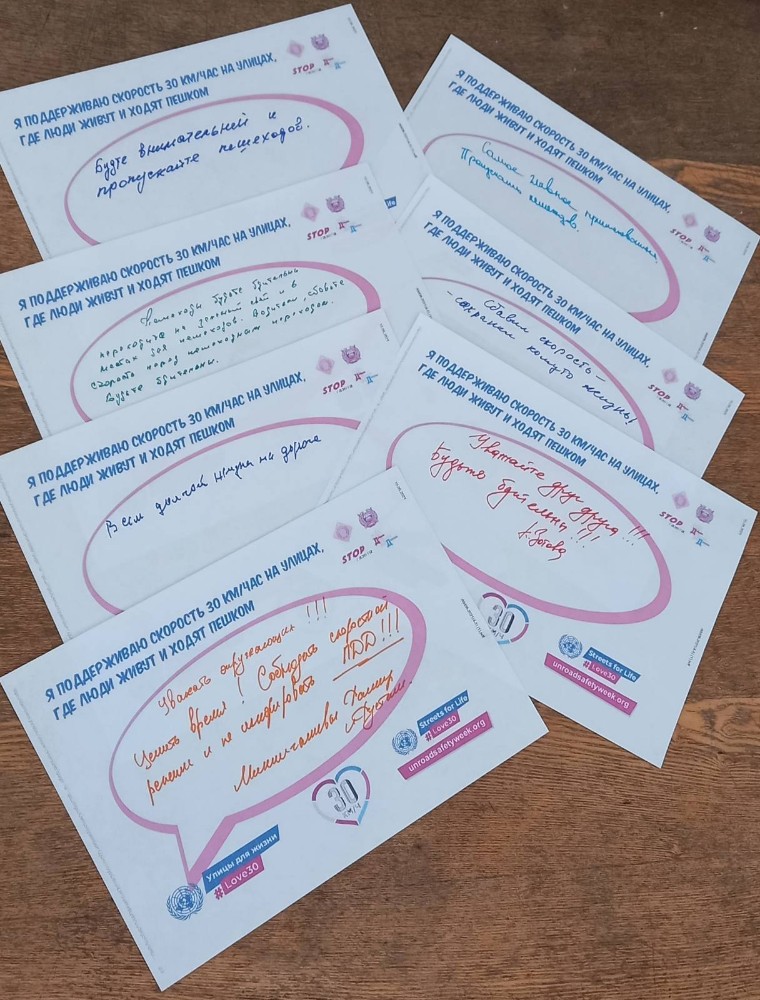 Я ПОДДЕРЖИВАЮ СКОРОСТЬ 30 КМ/ЧАС НА УЛИЦАХ,
ГДЕ ЛЮДИ ЖИВУТ И ХОДЯТ ПЕШКОМ
STOP
Будте внимательней и
пропускайте пешеходов.
Я ПОДДЕРЖИВАЮ СКОРОСТЬ 30 КМ/ЧАС НА УЛИЦАХ,
ГДЕ ЛЮДИ ЖИВУТ И ХОДЯТ ПЕШКОМ
STOP
Самое главное
Пропускать пешеходов.
Я ПОДДЕРЖИВАЮ СКОРОСТЬ 30 КМ/ЧАС НА УЛИЦАХ,
ГДЕ ЛЮДИ ЖИВУТ И ХОДЯТ ПЕШКОМ
STOP
Пешеходы будьте бдительны
переходите на зеленый свет и в
местах для пешеходов. Водители, сбавьте
скорость перед пешеходным переходом.
Будьте бдительны.
Я ПОДДЕРЖИВАЮ СКОРОСТЬ 30 КМ/ЧАС НА УЛИЦАХ,
ГДЕ ЛЮДИ ЖИВУТ И ХОДЯТ ПЕШКОМ
STOP
Сбавил скорость –
– сохранил кому-то жизнь!
Я ПОДДЕРЖИВАЮ СКОРОСТЬ 30 КМ/ЧАС НА УЛИЦАХ,
ГДЕ ЛЮДИ ЖИВУТ И ХОДЯТ ПЕШКОМ
STOP
Всем долгой жизни на дороге
Я ПОДДЕРЖИВАЮ СКОРОСТЬ 30 КМ/ЧАС НА УЛИЦАХ,
ГДЕ ЛЮДИ ЖИВУТ И ХОДЯТ ПЕШКОМ
STOP
Уважайте друг друга!!!
Будьте бдительны!!!
30
Streets for Life
#Love30
unroadsafetyweek.org
Я ПОДДЕРЖИВАЮ СКОРОСТЬ 30 КМ/ЧАС НА УЛИЦАХ,
ГДЕ ЛЮДИ ЖИВУТ И ХОДЯТ ПЕШКОМ
STOP
Уважать окружающих!!!
Ценить время! Соблюдать скоростной
режим и не игнорировать ПДД!!!
30
КМ/Ч
Streets for Life
#Love30
unroadsafetyweek.org
Улицы для жизни
#Love30